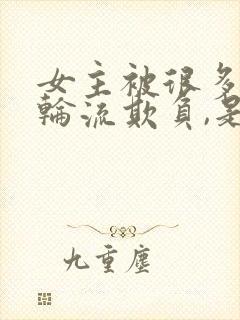 女主被很多
輪流欺負,是
九重塵